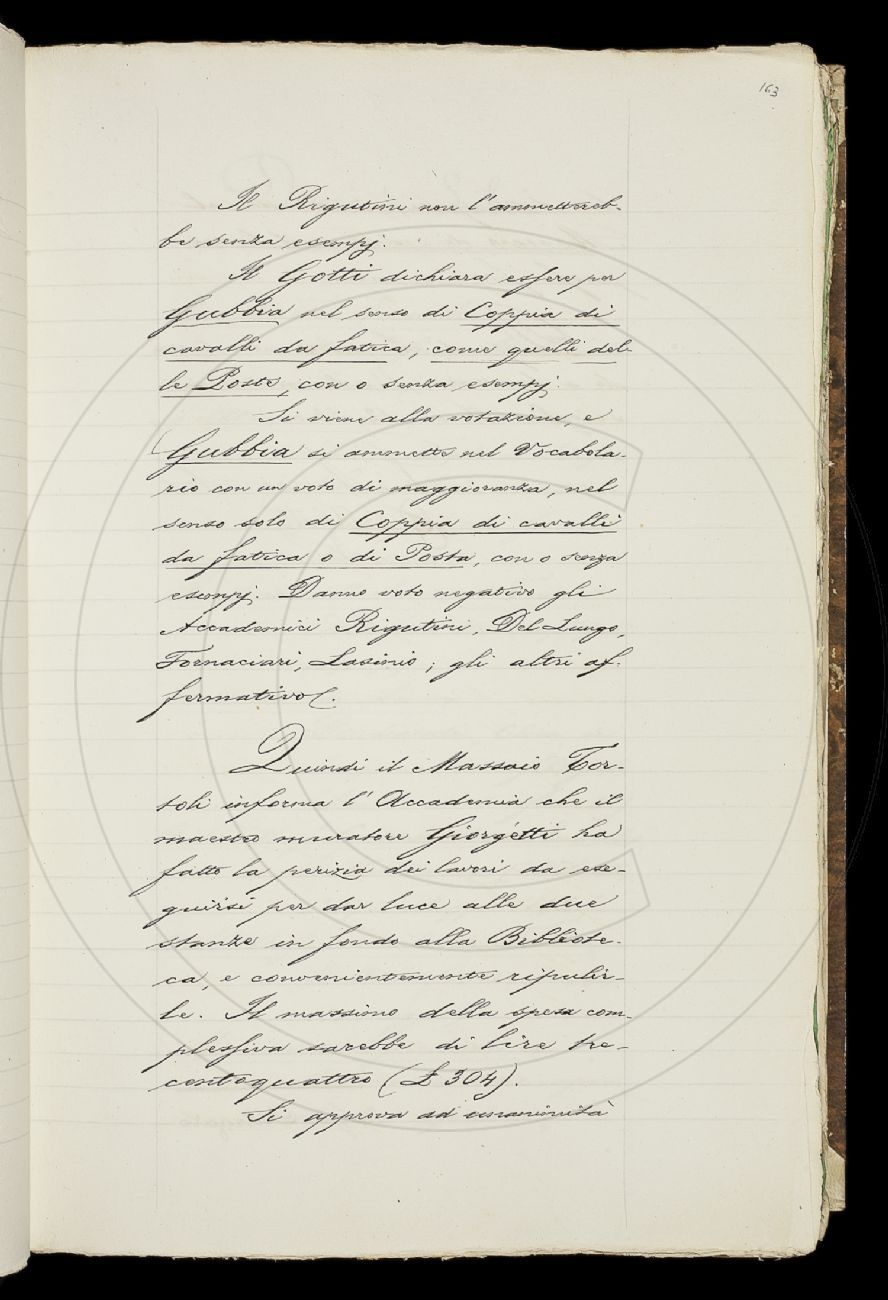 163
Il Rigutini non l'ammettereb-
be senza esempj.
Il Gotti dichiara essere per
Gubbia nel senso di Coppia di
cavalli da fatica, come quelli del-
le Poste, con o senza esempj.
Si viene alla votazione, e
(Gubbia si ammette nel Vocabola-
rio con un voto di maggioranza, nel
senso solo di Coppia di cavalli
da fatica o di Posta, con o senza
esempj. Danno voto negativo gli
Accademici Rigutini, Del Lungo,
Fornaciari, Lasinio; gli altri af-
fermativo(.
Quindi il Massaio Tor-
toli informa l'Accademia che il
maestro muratore Giorgetti ha
fatto la perizia dei lavori da ese-
guirsi per dar luce alle due
stanze in fondo alla Bibliote-
ca, e convenientemente ripulir-
le. Il massimo della spesa com-
plessiva sarebbe di lire tre-
centoquattro (£ 304).
Si approva ad unanimità